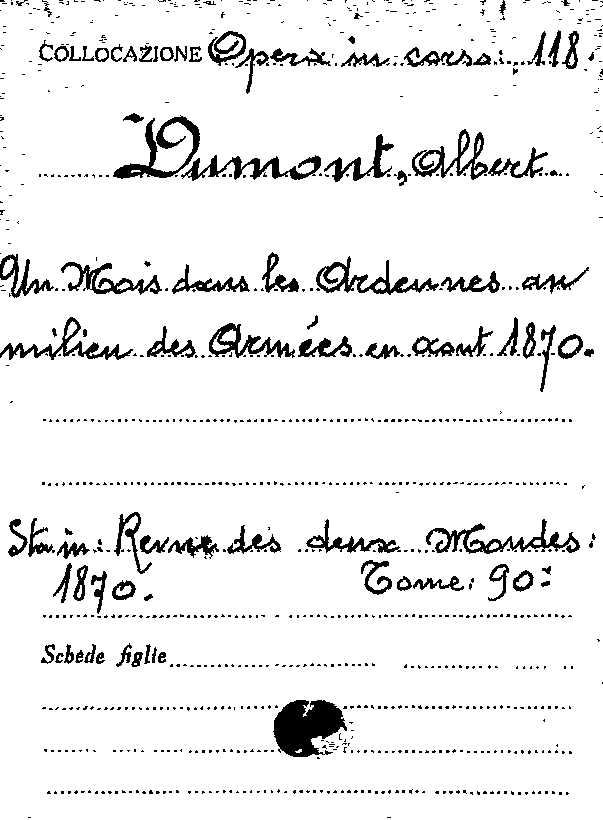 COLLOCAZIONE Opera in corso: 118.
Dumont, Albert.
Un Mois dans les Ardennes au
milieu des Armées en aout 1870.
Sta in: Revue des deux Mondes:
1870. Tome: 90:
Schede figlie